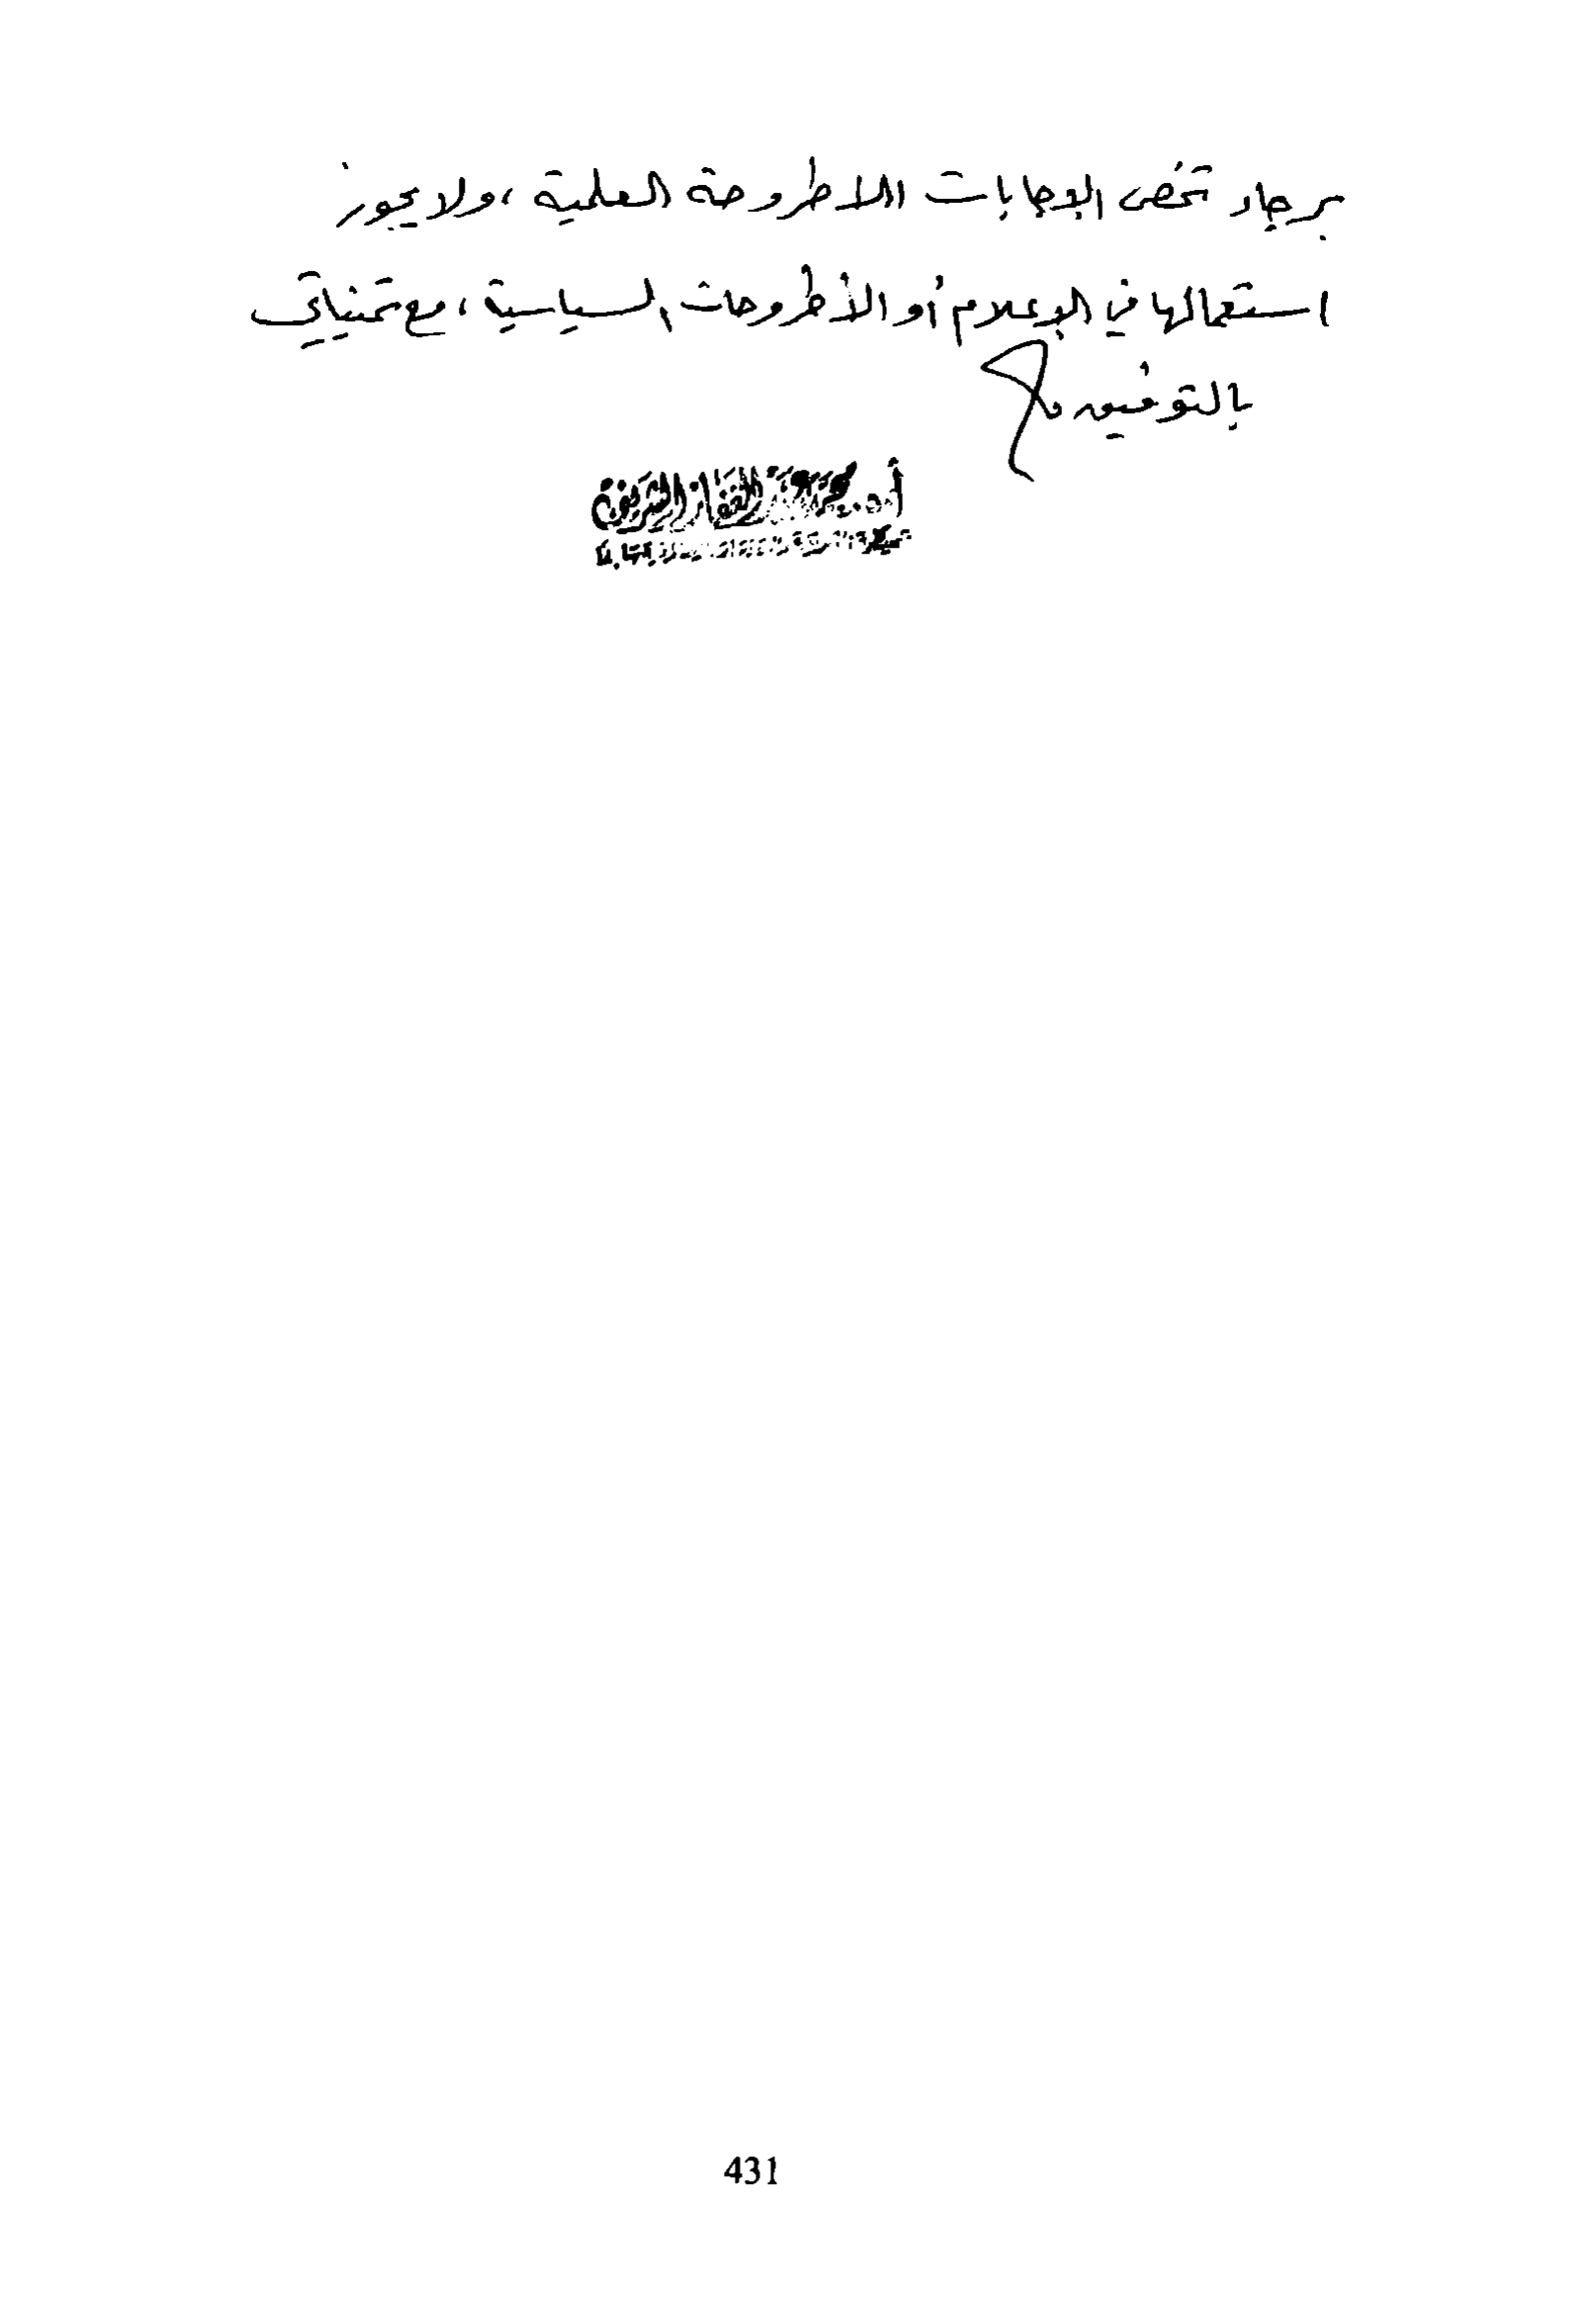 برجاء تخص الإجابات الاطروحة العلمية ، ولا يجوز
استعمالها في الإعلام أو الأطروحات السياسية ، مع تمنياتي
بالتوفيق
أ.د.
431